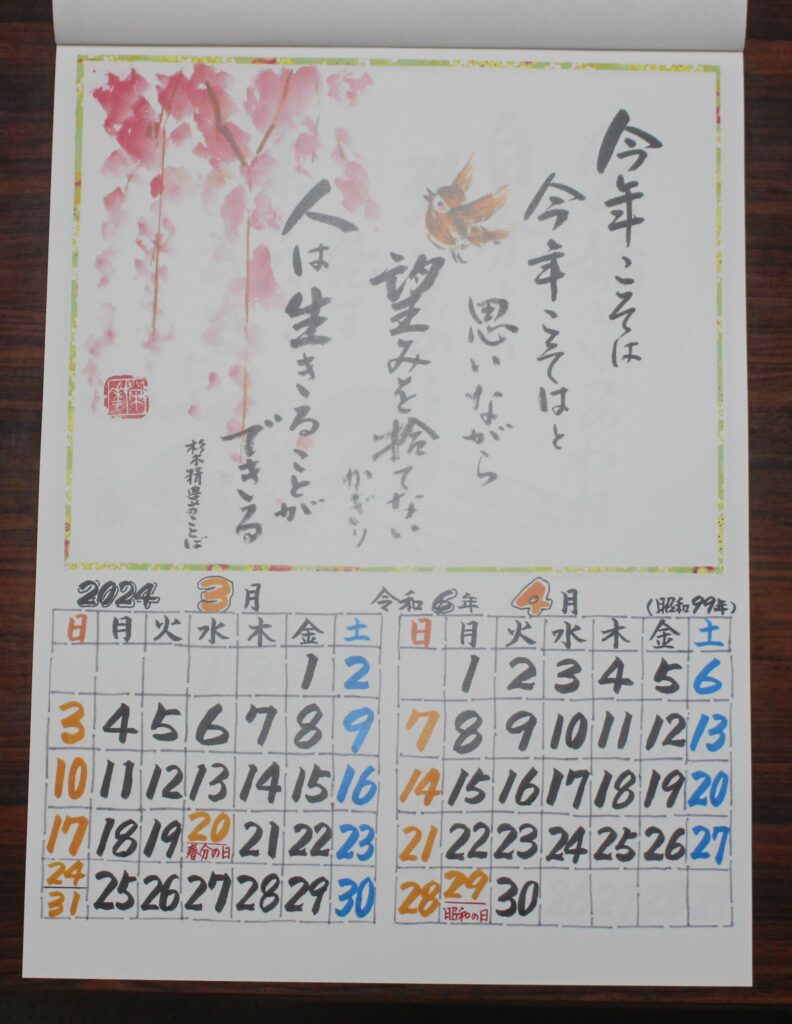 今年こそは
今年こそはと
思いながら
望みを捨てない
かぎり
人は生きることが
できる
杉木精興のことば
2024 3月 令和6年 4月 (昭和99年)
日 月 火 水 木 金 土
1 2
3 4 5 6 7 8 9
10 11 12 13 14 15 16
17 18 19 20 21 22 23
春分の日
24 25 26 27 28 29 30
31
日 月 火 水 木 金 土
1 2 3 4 5 6
7 8 9 10 11 12 13
14 15 16 17 18 19 20
21 22 23 24 25 26 27
28 29 30
昭和の日